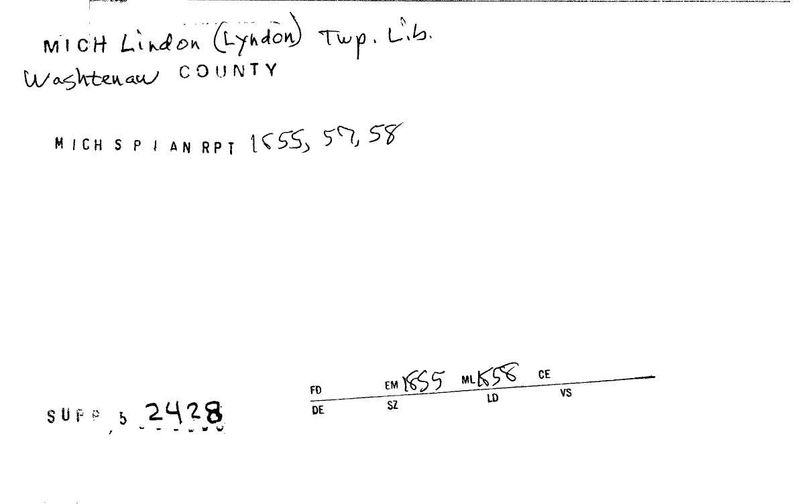 MICH Lindon (Lyndon) Twp. Lib.
Washtenaw COUNTY
MICH S P I AN RPT 1855, 57, 58
FD EM 1855 ML 1858 CE
DE SZ LD VS
SUPP 5 2428